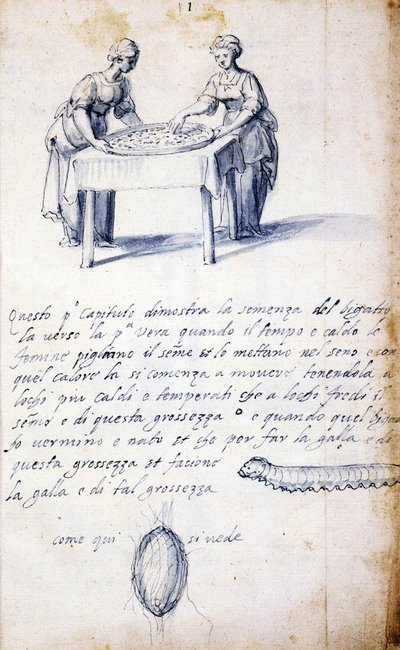 1
Questo pº Capitulo dimostra la semenza del bigatto
la verso la pª vera quando il tempo e caldo le
femine pigliano il seme et lo mettano nel seno e con
quel calore la si comenza a movere tenendola a
lochi piu caldi e temperati che a lochi fredi il
seme e di questa grossezza o e quando quel biga
to vermino e nato et che per far la galla e di
questa grossezza et facione
la galla e di tal grossezza
come qui si vede